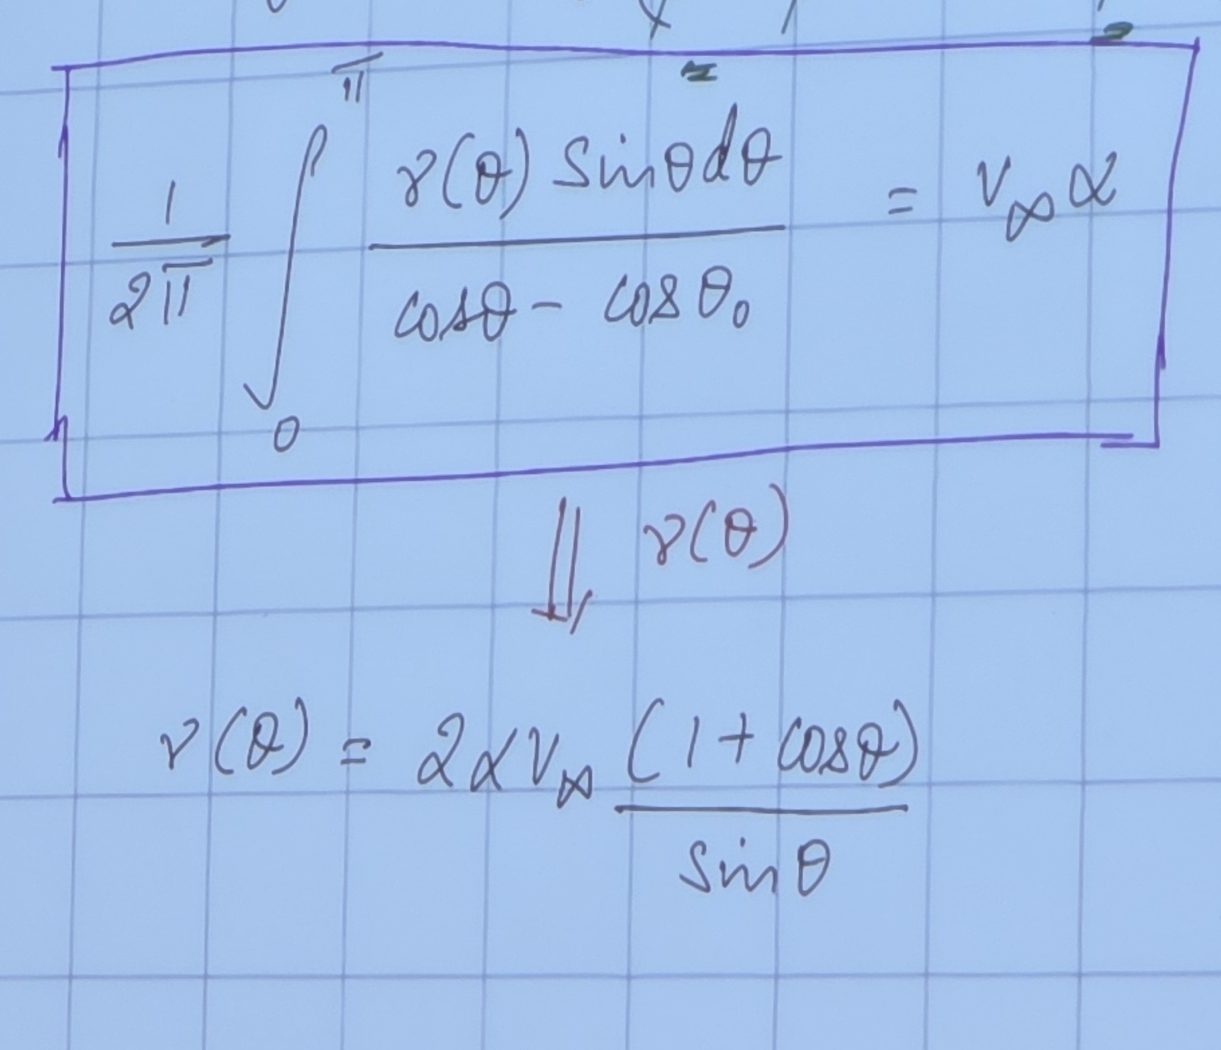 1/2π ∫₀^π γ(θ) sinθdθ / cosθ - cosθ₀ = V∞α
⇓ γ(θ)
γ(θ) = 2αV∞ (1 + cosθ) / sinθ